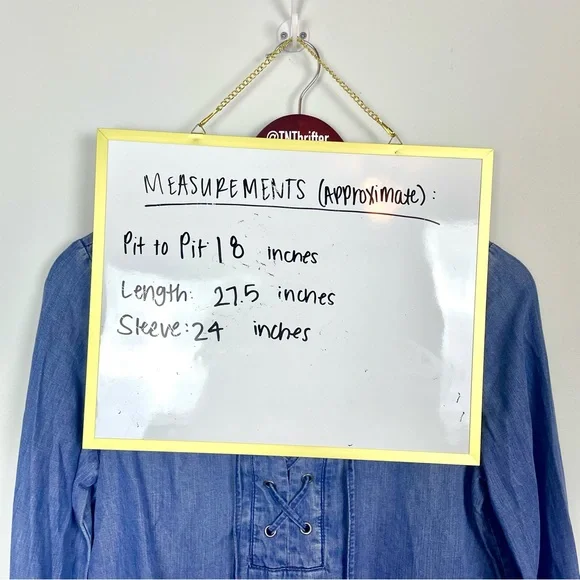 @TNThrifter
MEASUREMENTS (Approximate):
Pit to Pit 18 inches
Length: 27.5 inches
Sleeve: 24 inches